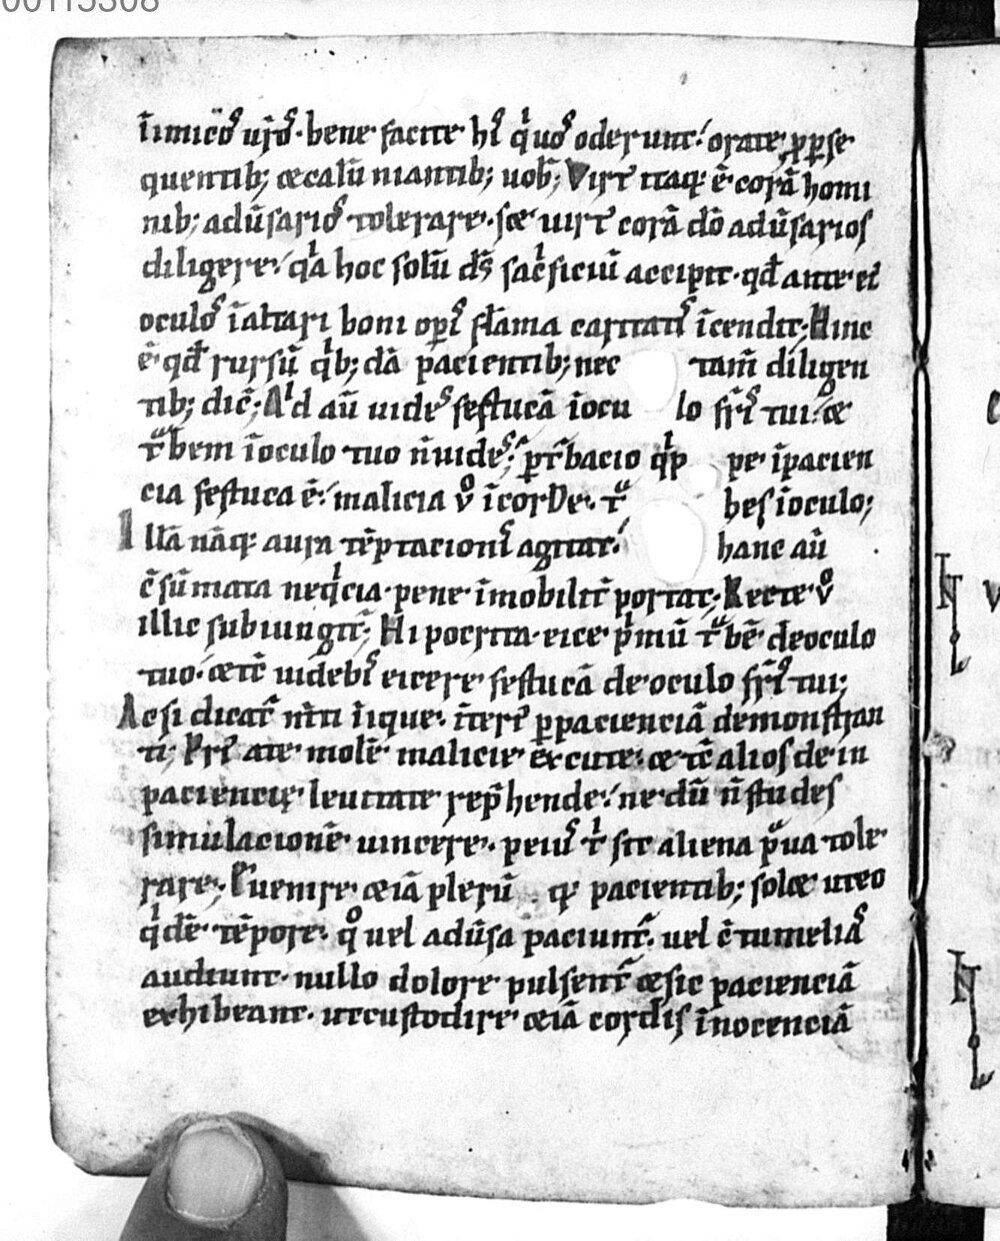 00115308
īimicoˢ ur̄oˢ· bene facite hiˢ qⁱ uoˢ oderunt· orate ꝓ ꝑse
quentib; ⁊ calū niantib; uob̄; Virt᷒ itaq; ē corā homi
nib; adūsarioˢ tolerare· sꝫ uirt᷒ corā dō adūsarios
diligere· qⁱa hoc solū ds̄ sacⁱficiū accipit· qd̄ ante ei᷒
oculoˢ īaltari boni opiˢ flāma caritatiˢ īcendit; Hinc
ē qd̄ rursū qⁱb;dā pacientib; nec tam̄ diligen
tib; dic̄; Qⁱd aū uideˢ festucā īocu lo fr̄iˢ tui· ⁊
tᵃbem īoculo tuo n̄ uideˢ; ꝑt᷒bacio qⁱp pe īpacien
cia festuca ē· malicia v̊ īcorde· tᵃ bes īoculo;
Illā nāq; aura tēptacioniˢ agitat· hanc aū
c̄sūmata neqⁱcia· pene īmobilit̄ portat; Recte v̊
illic subiungit̄; Hipocrita· eice pⁱmū tᵃbē deoculo
tuo· ⁊ tc̄ uidebiˢ eicere festucā de oculo fr̄iˢ tui;
Ac si dicat᷒ m̄ti īique· īteri᷒ ꝑ pacienciā demonstran
ti; Pri᷒ a te molē malicie excute· ⁊ tc̄ alios de in
paciencię leuitate rep̄hende· ne dū n̄ studes
simulacionē uincere· pei᷒ tⁱ sit aliena pᵃua tole
rare; Euenire ⁊iā plerū q; pacientib; solꝫ ut eo
qⁱdē tēpore· q̊ uel adūsa paciunt᷒· uel c̄tumeliaˢ
audiunt· nullo dolore pulsent᷒ ⁊ sic pacienciā
exhibeant· ut custodire ⁊iā cordis īnocenciā